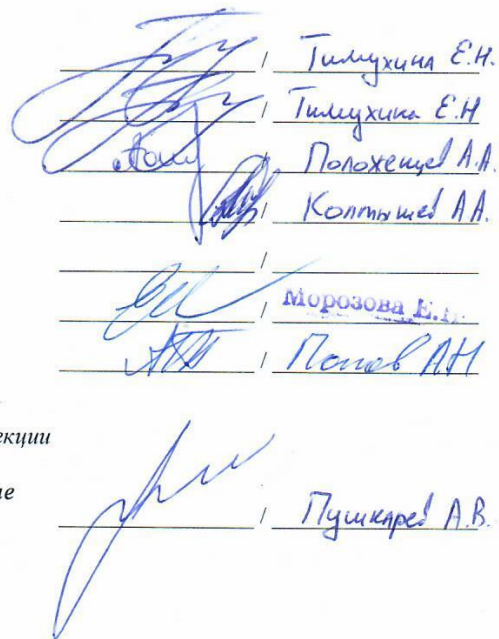 / Тимухина Е.Н.
/ Тимухина Е.Н
/ Положенцев А.А.
/ Колтышев А.А.
/
/ Морозова Е.
/ Попов АН
екции
ие
/ Пушкарев А.В.